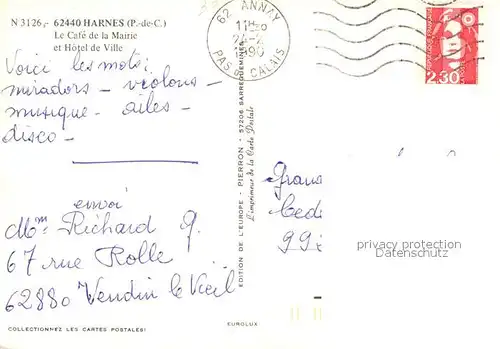 N 3126,- 62440 HARNES (P.-de-C.)
Le Café de la Mairie
et Hôtel de Ville
Voici les mots:
miradors - violons -
musique - ailes -
disco -
envoi
Mme Richard G.
67 rue Rolle
62880 Vendin le Vieil
COLLECTIONNEZ LES CARTES POSTALES!
EDITION DE L'EUROPE - PIERRON - 57206 SARREGUEMINES
L'imprimeur de la Carte Postale
EUROLUX
62 ANNAY
1990
PAS DE CALAIS
2,30
Cede
99
privacy protection
Datenschutz